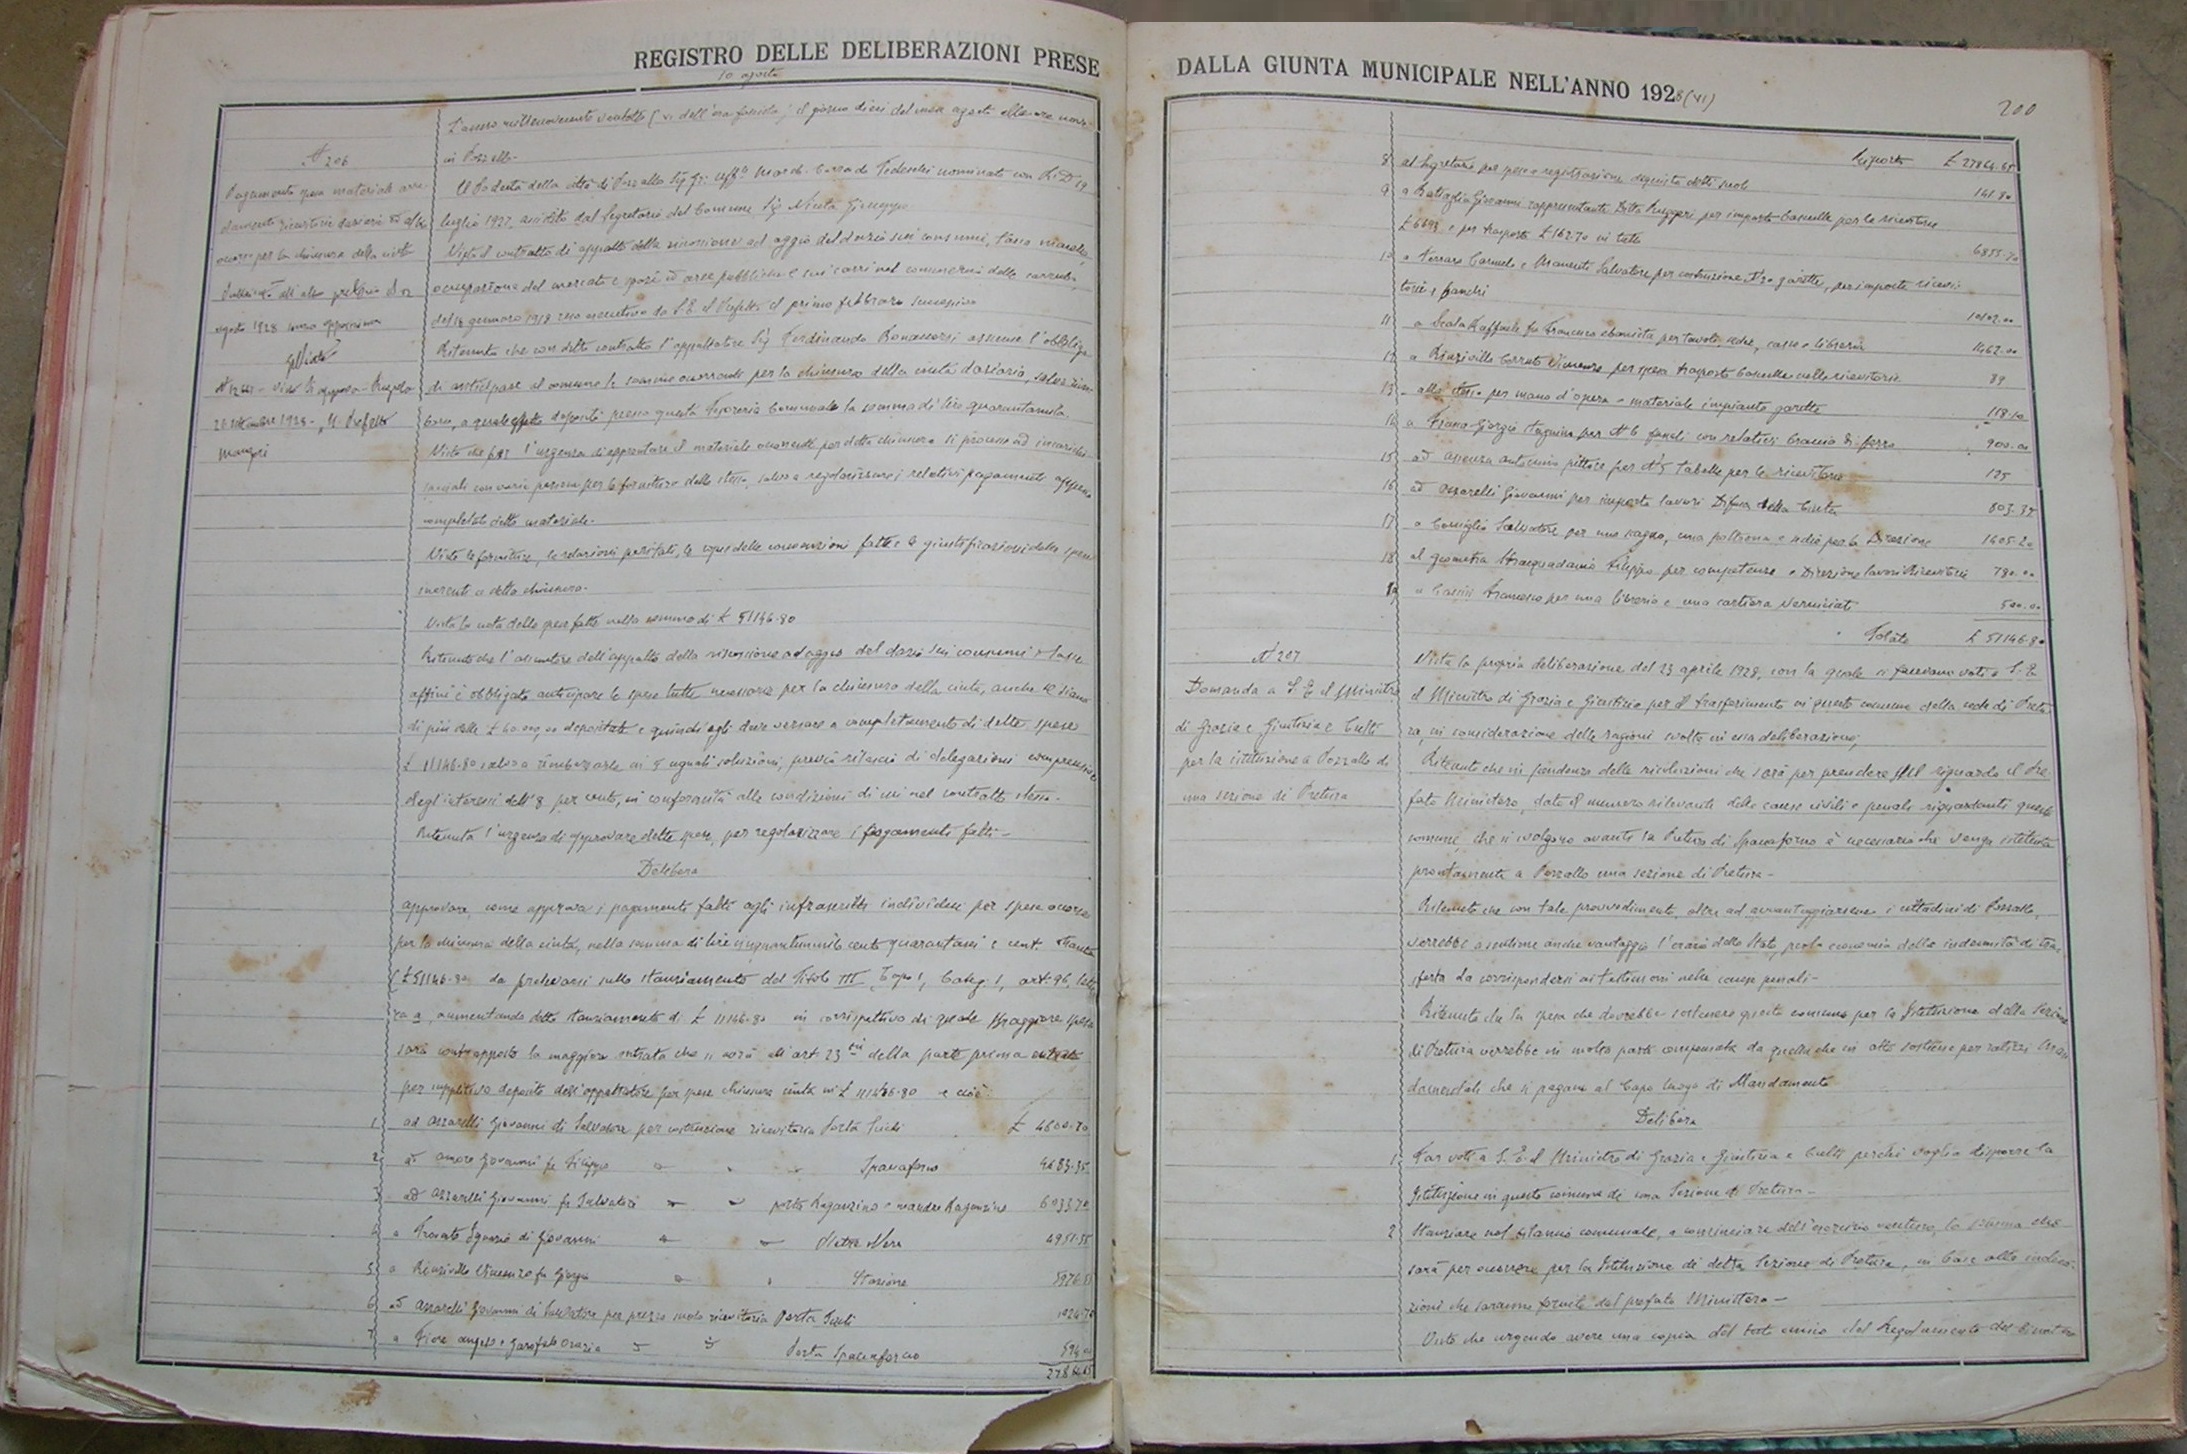 REGISTRO DELLE DELIBERAZIONI PRESE
10 agosto
L'anno millenovecento ventotto (VI dell'era fascista) il giorno dieci del mese agosto alle ore nove
in Pozzallo.
N 206
Pagamento spesa materiale arre-
damento ricevitorie daziarie ed altro
occorso per la chiusura della cinta
agosto 1928 senza opposizione
26 settembre 1928 - Il Prefetto
Il Podestà della città di Pozzallo Sig Gr: Uff.le March. Corrado Tedeschi nominato con R. D 19
luglio 1927, assistito dal Segretario del Comune Sig Giuseppe
Visto il contratto di appalto della riscossione ad aggio del dazio sui consumi, tassa macello,
occupazione del mercato e spazi ed aree pubbliche e sui carri nel
del 16 gennaro 1928 reso esecutivo da S. E. il Prefetto il primo febbraro successivo
Ritenuto che con detto contratto l'appaltatore Sig Ferdinando Bonaccorsi assunse l'obbligo
di anticipare al comune le somme occorrende per la chiusura della cinta daziaria, salvo rim-
borso, a quale effetto depositò presso questa Tesoreria Comunale la somma di lire quarantamila
Visto che per l'urgenza di approntare il materiale occorrente per detta chiusura si procedé ad incarichi
speciali con varie persone per la fornitura dello stesso, salvo a regolarizzare i relativi pagamenti appena
completato detto materiale.
Viste le forniture, le relazioni peritali, le copie delle convenzioni fatte e le giustificazioni delle spese
inerenti a detta chiusura.
Vista la nota delle spese fatte nella somma di £ 51146.80
Ritenuto che l'assuntore dell'appalto della riscossione ad aggio del dazio sui consumi e tasse
affini è obbligato anticipare le spese tutte necessarie per la chiusura della cinta, anche se siano
di più delle £ 40.000,00 depositate e quindi egli deve versare a completamento di dette spese
£ 11146.80 salvo a rimborzarle in 5 uguali soluzioni, previo rilascio di delegazioni comprensive
degl'interessi dell'8 per cento, in conformità alle condizioni di cui nel contratto stesso.
Ritenuta l'urgenza di approvare dette spese, per regolarizzare i pagamenti fatti -
Delibera
approvare, come approva i pagamenti fatti agli infrascritti individui per spese occorse
per la chiusura della cinta, nella somma di lire cinquantunmila cento quarantasei e cent. ottanta
(£ 51146.80) da prelevarsi sullo stanziamento del Titolo III, Capo 1, Categ. 1, art. 96, lette
ra a, aumentando detto stanziamento di £ 11146.80 in corrispettivo di quale maggiore spesa
sarà contrapposto la maggiore entrata che si avrà all'art. 23 bis della parte prima entrata
per suppletivo deposito dell'appaltatore per spese chiusura cinta in £ 11146.80 e cioè:
1 ad Azzarelli Giovanni di Salvatore per costruzione ricevitoria Porta Scicli £ 4600.70
2 ad Amore Giovanni fu Filippo " " " Spaccaforno 4683.35
3 ad Azzarelli Giovanni fu Salvatore " " porta Raganzino e mandre Raganzino 6033.70
4 a Trovato Ignazio di Giovanni " " Pietre Nere 4951.55
5 a Rinzivillo Vincenzo fu Giorgio " " Stazione
6 ad Azzarelli Giovanni di Salvatore per prezzo suolo ricevitoria Porta Scicli
7 a Fiore Angelo e Garofalo Orazio " " Porta Spaccaforno 594.00
27864.65
DALLA GIUNTA MUNICIPALE NELL'ANNO 1928 (VI)
200
Riporto £ 27864.65
8 al Segretario per spese registrazione acquisto detti suoli 141.80
9 a Battaglia Giovanni rappresentante Ditta Ruggeri per importo basculle per le ricevitorie
£ 6693 e per trasporto £ 162.70 in tutto 6855.70
10 a Ferraro Carmelo e Salvatore per costruzione N° 20 garette, per imposte ricevi
torie e fanali
11 a Scala Raffaele fu Francesco ebanista per tavoli, sedie, casse e libreria 1462.00
12 a Rinzivillo Corrado Vincenzo per spesa trasporto basculle nelle ricevitorie 89
13 allo stesso per mano d'opera e materiale impianto garette 118.10
14 a Giorgio stagnino per N 6 fanali con relativi braccio di ferro 900.00
15 ad Assenza Antonino pittore per N° 5 tabelle per le ricevitorie 125
16 ad Azzarelli Giovanni per importo lavori Difesa della Cinta 603.35
17 a Coniglio Salvatore per uno scagno, una poltrona e sedie per la Direzione 1405.20
18 al geometra Stracquadanio Filippo per competenze e Direzione lavori Ricevitorie 780.00
19 a Francesco per una libreria e una cartiera verniciati 500.00
Totale £ 51146.80
N 207
Domanda a S. E. il Ministro
di Grazia e Giustizia e Culti
per la istituzione a Pozzallo di
una sezione di Pretura
Vista la propria deliberazione del 23 aprile 1928, con la quale si facevano voti a S. E.
il Ministro di Grazia e Giustizia per il trasferimento in questo comune della sede di Pretu
ra, in considerazione delle ragioni svolte in essa deliberazione;
Ritenuto che in pendenza delle risoluzioni che sarà per prendere sul riguardo il Pre
fato Ministero, dato il numero rilevante delle cause civili e penali riguardanti questo
comune, che si svolgono avanti la Pretura di Spaccaforno è necessario che venga istituita
prontamente a Pozzallo una sezione di Pretura -
Ritenuto che con tale provvedimento, oltre ad avvantaggiarsene i cittadini di Pozzallo,
verrebbe a sentirne anche vantaggio l'erario dello Stato, per la economia delle indennità di tra
sferta da corrispondersi ai testimoni nelle cause penali -
Ritenuto che la spesa che dovrebbe sostenere questo comune per la Istituzione della Sezione
di Pretura verrebbe in molta parte compensata da quella che in atto sostiene per ratizzi
damentali che si pagano al Capo luogo di Mandamento
Delibera
1 Far voti a S. E. il Ministro di Grazia e Giustizia e Culti perché voglia disporre la
Istituzione in questo comune di una Sezione di Pretura -
2 Stanziare nel bilancio comunale, a cominciare dell'esercizio venturo, la somma che
sarà per occorrere per la Istituzione di detta Sezione di Pretura, in base alle indica-
zioni che saranno fornite dal prefato Ministero -
Visto che urgendo avere una copia del Regolamento del